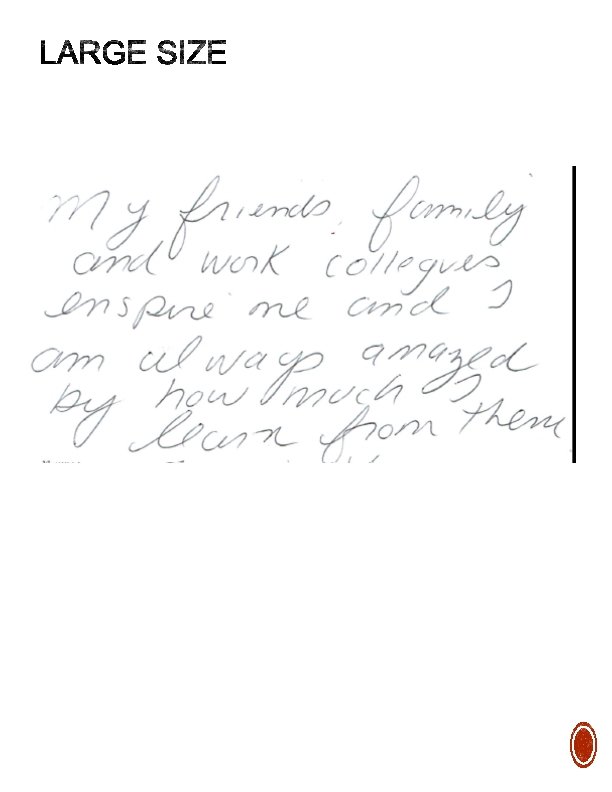 LARGE SIZE
My friends, family
and work collegues
enspire me and I
am always amazed
by how much I
learn from them